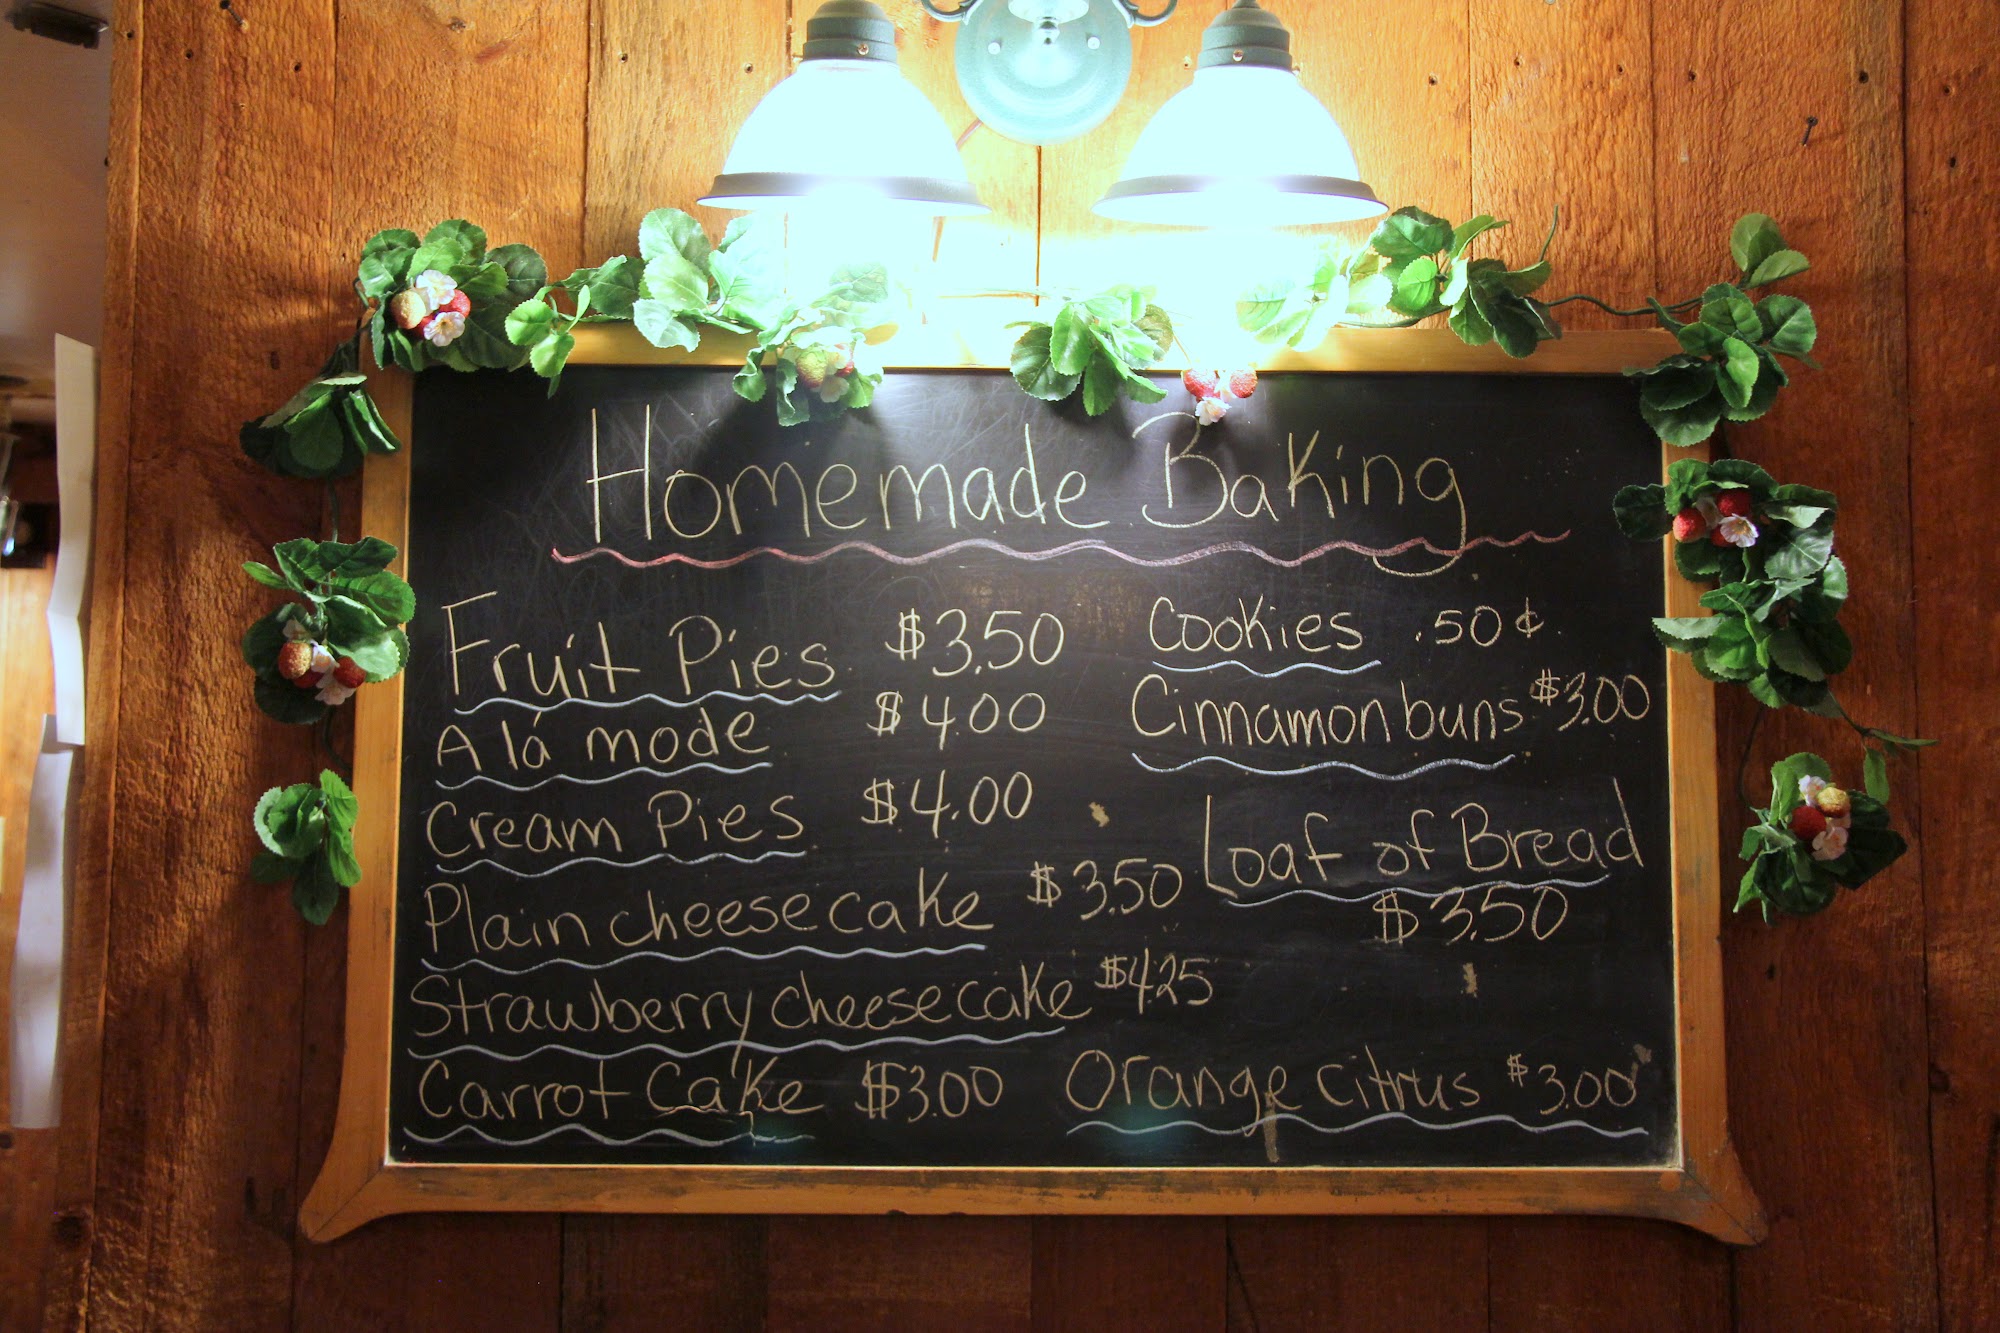 Homemade Baking
Fruit Pies $3.50
A lá mode $4.00
Cream Pies $4.00
Plain cheesecake $3.50
Strawberry cheesecake $4.25
Carrot Cake $3.00
Cookies .50¢
Cinnamon buns $3.00
Loaf of Bread
$3.50
Orange citrus $3.00